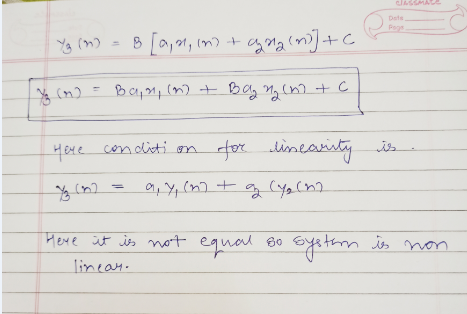 CLASSMATE
Date
Page
y₃(n) = B[a₁x₁(n) + a₂x₂(n)] + C
y₃(n) = Ba₁x₁(n) + Ba₂x₂(n) + C
Here condition for linearity is .
y₃(n) = a₁y₁(n) + a₂(y₂(n)
Here it is not equal so system is non
linear.